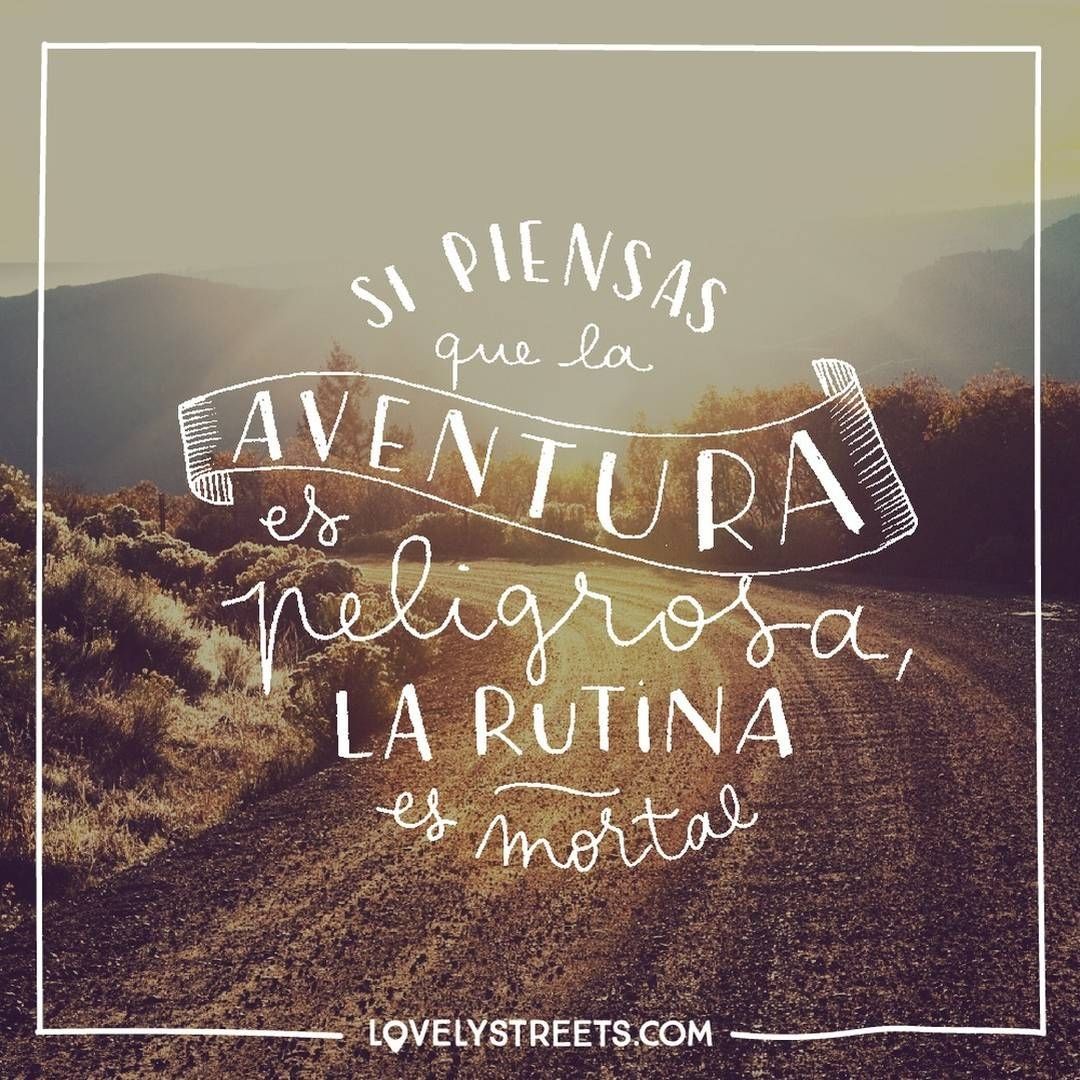 SI PIENSAS
que la
AVENTURA
es
peligrosa,
LA RUTINA
es mortal
LOVELYSTREETS.COM